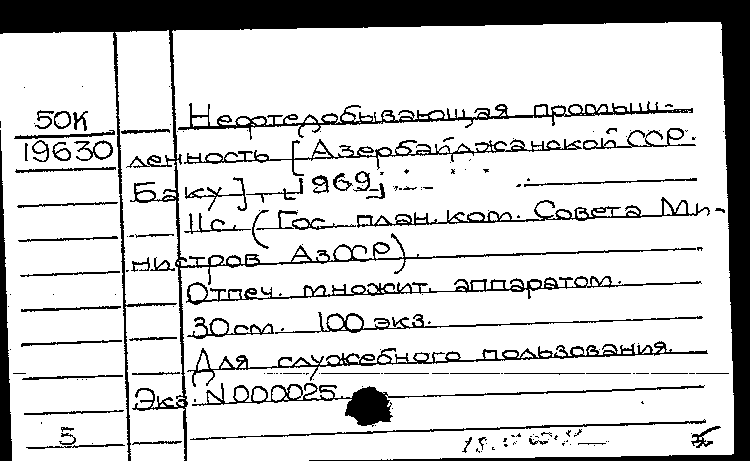 50К Нефтедобывающая промыш-
19630 ленность [Азербайджанской ССР.
Баку], [1969]
11с. (Гос. план. ком. Совета Ми-
нистров АзССР).
Отпеч. множит. аппаратом.
30см. 100 экз.
Для служебного пользования.
Экз. N000025
5